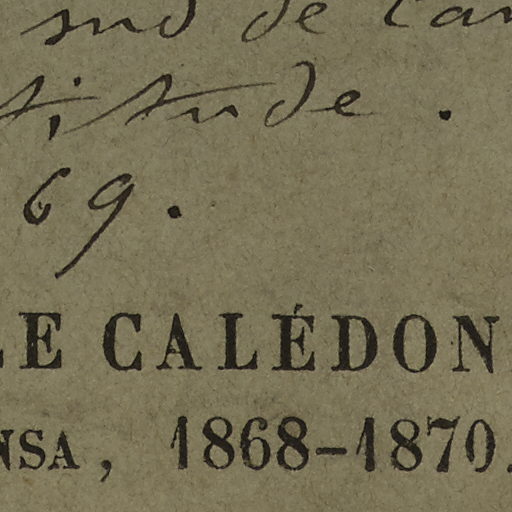 sud de Can
titude .
69.
LE CALÉDON
NSA, 1868–1870.